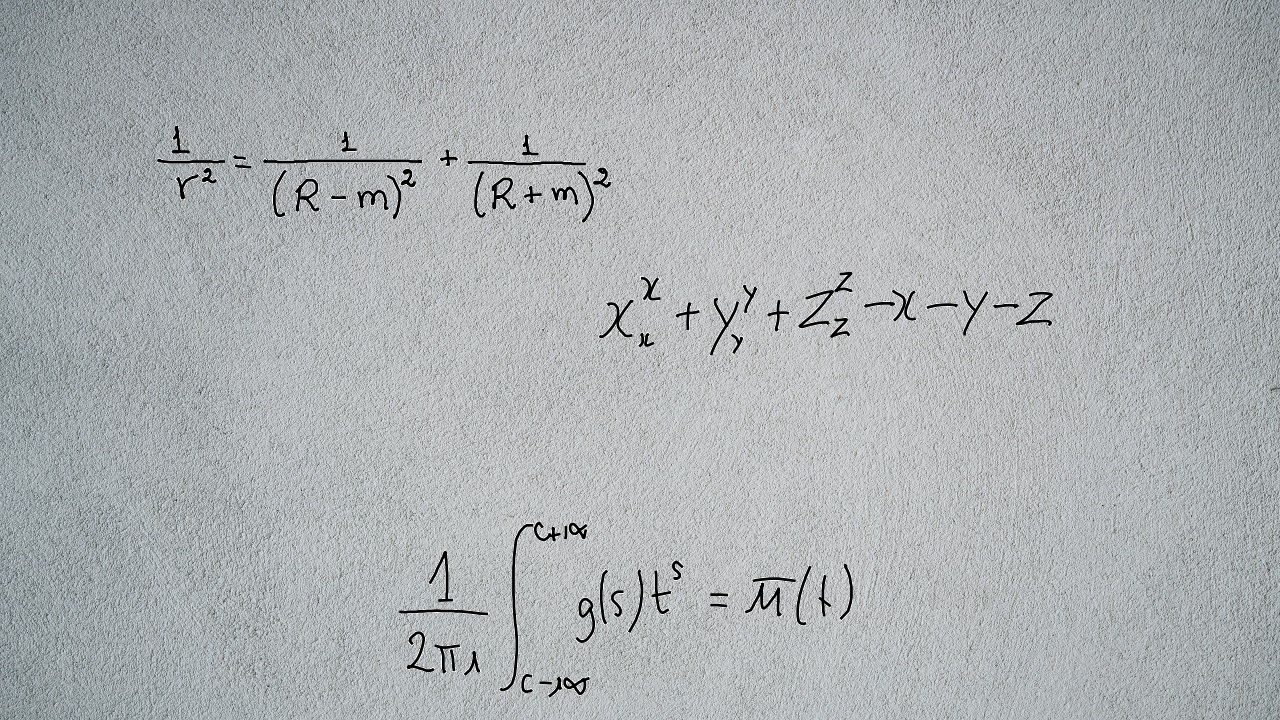 \frac{1}{r^2} = \frac{1}{(R-m)^2} + \frac{1}{(R+m)^2}
x_x^x + y_y^y + z_z^z - x - y - z
\frac{1}{2\pi i} \int_{c-i\infty}^{c+i\infty} g(s) t^s = \overline{M}(t)